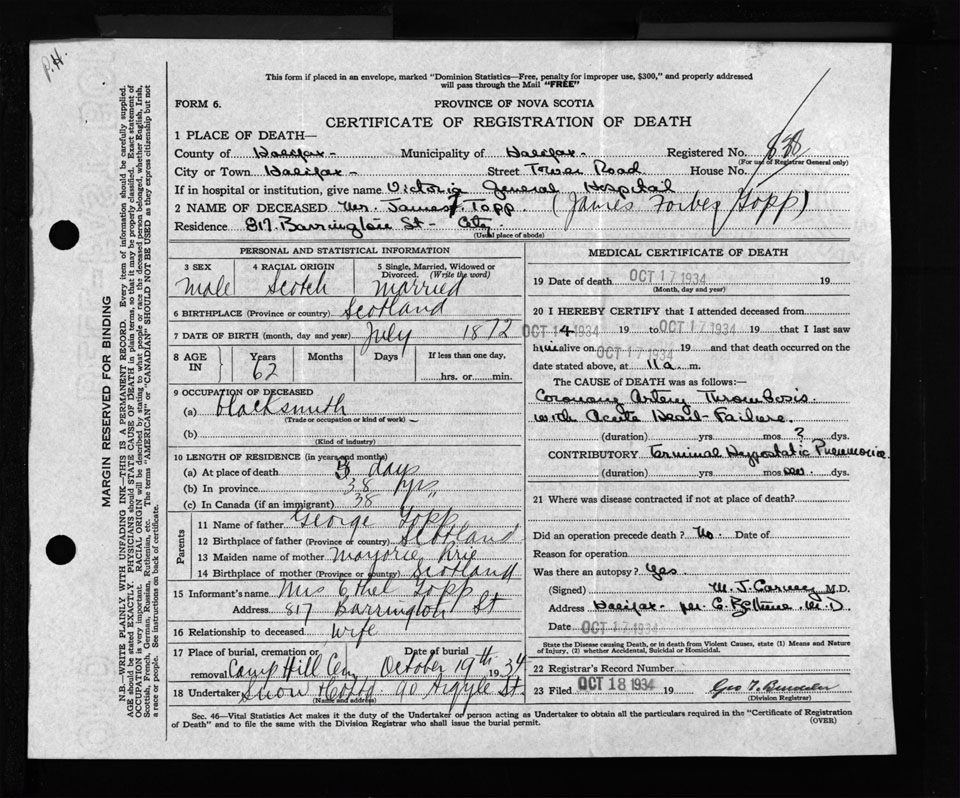 P.H.
This form if placed in an envelope, marked "Dominion Statistics—Free, penalty for improper use, $300," and properly addressed
will pass through the Mail "FREE"
FORM 6.
PROVINCE OF NOVA SCOTIA
CERTIFICATE OF REGISTRATION OF DEATH
1 PLACE OF DEATH—
County of Halifax - Municipality of Halifax - Registered No.
(For use of Registrar General only)
City or Town Halifax - Street Tower Road House No.
If in hospital or institution, give name Victoria General Hospital
2 NAME OF DECEASED Mr. James F. Topp (James Forbes Topp)
Residence 817 Barrington St - City
(Usual place of abode)
PERSONAL AND STATISTICAL INFORMATION
3 SEX Male
4 RACIAL ORIGIN Scotch
5 Single, Married, Widowed or Divorced. (Write the word) Married
6 BIRTHPLACE (Province or country) Scotland
7 DATE OF BIRTH (month, day and year) July 1872
8 AGE IN Years 62 Months Days If less than one day, hrs. or min.
9 OCCUPATION OF DECEASED
(a) blacksmith
(Trade or occupation or kind of work)
(b)
(Kind of industry)
10 LENGTH OF RESIDENCE (in years and months)
(a) At place of death days
(b) In province 38 yrs
(c) In Canada (if an immigrant) 38
Parents
11 Name of father George Topp
12 Birthplace of father (Province or country) Scotland
13 Maiden name of mother Marjorie
14 Birthplace of mother (Province or country) Scotland
15 Informant's name Mrs Ethel Topp
Address 817 Barrington St
16 Relationship to deceased wife
17 Place of burial, cremation or removal Camp Hill Cem Date of burial October 19th 1934
18 Undertaker Snow & Co Ltd 90 Argyle St.
(Name and address)
MEDICAL CERTIFICATE OF DEATH
19 Date of death OCT 17 1934 19
(Month, day and year)
20 I HEREBY CERTIFY that I attended deceased from
OCT 14 1934 19 to OCT 17 1934 that I last saw
him alive on OCT 17 1934 19 and that death occurred on the
date stated above, at 11 a. m.
The CAUSE OF DEATH was as follows:—
Coronary Artery Thrombosis
with Acute Heart-Failure.
(duration) yrs. mos. 3 dys.
CONTRIBUTORY Terminal Hypostatic Pneumonia.
(duration) yrs. mos. dys.
21 Where was disease contracted if not at place of death?
Did an operation precede death? No. Date of
Reason for operation
Was there an autopsy? Yes
(Signed) M. J. Carney M.D.
Address Halifax - per M.D.
Date OCT 17 1934
State the Disease causing Death, or in death from Violent Causes, state (1) Means and Nature
of Injury, (2) whether Accidental, Suicidal or Homicidal.
22 Registrar's Record Number
23 Filed OCT 18 1934 19
(Division Registrar)
Sec. 46—Vital Statistics Act makes it the duty of the Undertaker or person acting as Undertaker to obtain all the particulars required in the "Certificate of Registration
of Death" and to file the same with the Division Registrar who shall issue the burial permit. (OVER)
MARGIN RESERVED FOR BINDING
N.B.—WRITE PLAINLY WITH UNFADING INK—THIS IS A PERMANENT RECORD. Every item of information should be carefully supplied.
AGE should be stated EXACTLY. PHYSICIANS should STATE CAUSE OF DEATH in plain terms, so that it may be properly classified. Exact statement of
OCCUPATION is very important. RACIAL ORIGIN will be described by stating to what people or race the deceased person belonged, whether English, Irish,
Scottish, French, German, Russian, Ruthenian, etc. The terms "AMERICAN" or "CANADIAN" SHOULD NOT BE USED as they express citizenship but not
a race or people. See instructions on back of certificate.